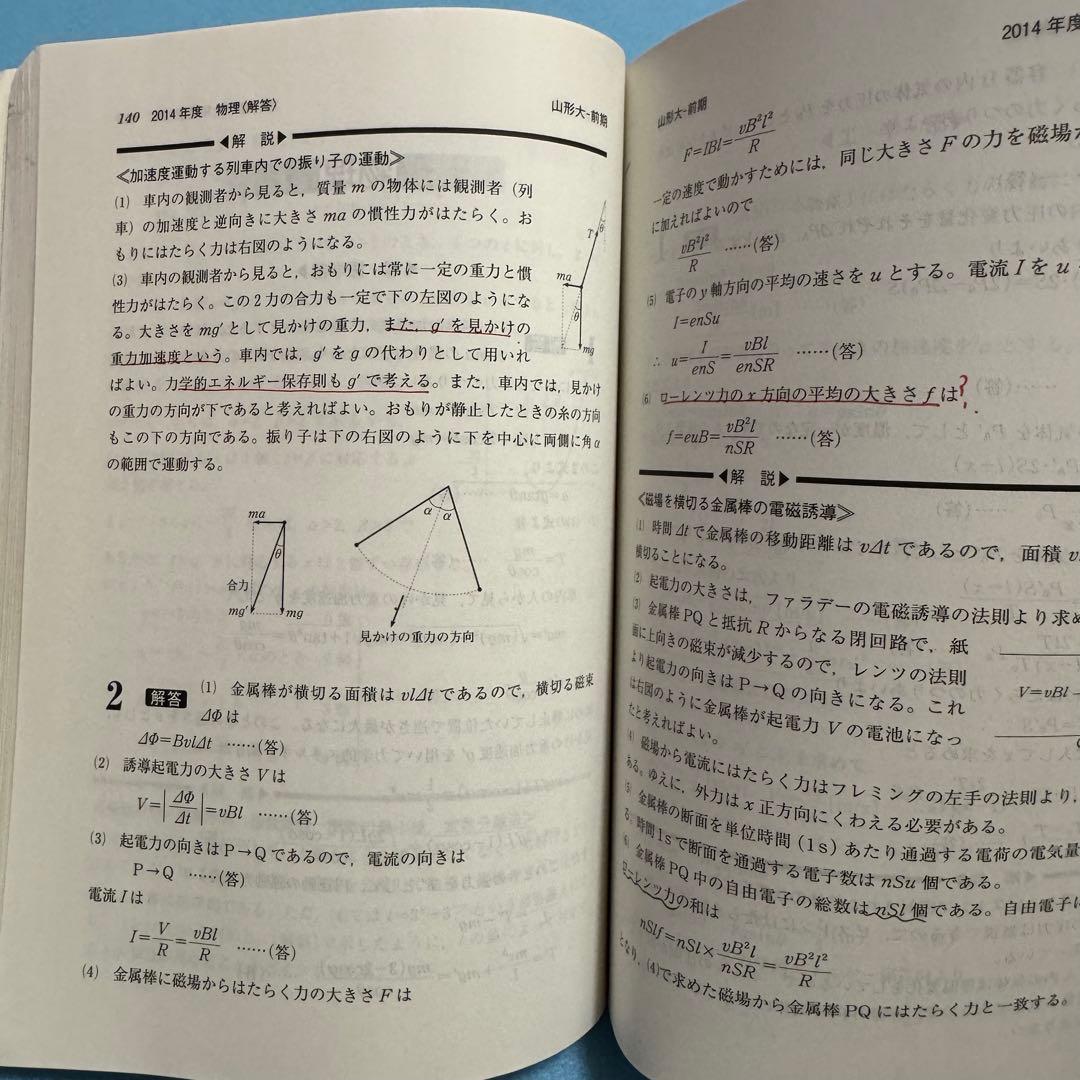 140 2014年度 物理〈解答〉 山形大-前期
◀解 説▶
≪加速度運動する列車内での振り子の運動≫
(1) 車内の観測者から見ると,質量 m の物体には観測者(列
車)の加速度と逆向きに大きさ ma の慣性力がはたらく。お
もりにはたらく力は右図のようになる。
(3) 車内の観測者から見ると,おもりには常に一定の重力と慣
性力がはたらく。この2力の合力も一定で下の左図のようにな
る。大きさを mg′ として見かけの重力,また,g′ を見かけの
重力加速度という。車内では,g′ を g の代わりとして用いれ
ばよい。力学的エネルギー保存則も g′ で考える。また,車内では,見かけ
の重力の方向が下であると考えればよい。おもりが静止したときの糸の方向
もこの下の方向である。振り子は下の右図のように下を中心に両側に角 α
の範囲で運動する。
T θ
ma
θ
mg
ma
θ
合力
mg′ mg
α α
見かけの重力の方向
2 解答 (1) 金属棒が横切る面積は vlΔt であるので,横切る磁束
ΔΦ は
ΔΦ=BvlΔt ……(答)
(2) 誘導起電力の大きさ V は
V=|ΔΦ/Δt|=vBl ……(答)
(3) 起電力の向きは P→Q であるので,電流の向きは
P→Q ……(答)
電流 I は
I=V/R=vBl/R ……(答)
(4) 金属棒に磁場からはたらく力の大きさ F は
2014年度
山形大-前期
F=IBl=vB²l²/R
一定の速度で動かすためには,同じ大きさ F の力を磁場か
に加えればよいので
vB²l²/R ……(答)
(5) 電子の y 軸方向の平均の速さを u とする。電流 I を u
I=enSu
∴ u=I/enS=vBl/enSR ……(答)
(6) ローレンツ力の x 方向の平均の大きさ f は?
f=euB=vB²l/nSR ……(答)
◀解 説▶
≪磁場を横切る金属棒の電磁誘導≫
(1) 時間 Δt で金属棒の移動距離は vΔt であるので,面積 v
横切ることになる。
(2) 起電力の大きさは,ファラデーの電磁誘導の法則より求め
(3) 金属棒 PQ と抵抗 R からなる閉回路で,紙
面に上向きの磁束が減少するので,レンツの法則
より起電力の向きは P→Q の向きになる。これ
は右図のように金属棒が起電力 V の電池になっ
たと考えればよい。
V=vBl
(4) 磁場から電流にはたらく力はフレミングの左手の法則より,
ある。ゆえに,外力は x 正方向にくわえる必要がある。
(5) 金属棒の断面を単位時間(1s)あたり通過する電荷の電気量
る。時間1sで断面を通過する電子数は nSu 個である。
(6) 金属棒 PQ 中の自由電子の総数は nSl 個である。自由電子に
ローレンツ力の和は
nSlf=nSl×vB²l/nSR=vB²l²/R
となり,(4)で求めた磁場から金属棒 PQ にはたらく力と一致する。